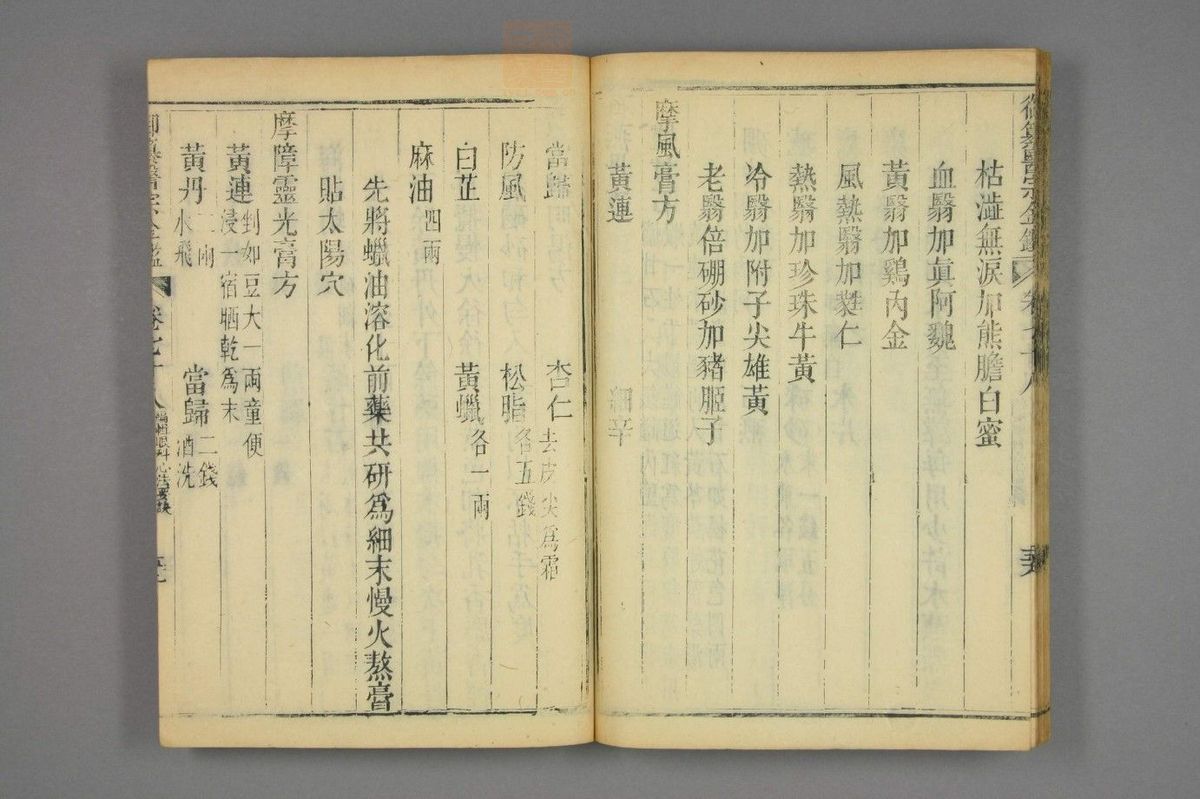 御纂醫宗金鑑 卷七十八
枯澁無淚加熊膽白蜜
血翳加真阿魏
黃翳加鷄內金
風熱翳加蕤仁
熱翳加珍珠牛黃
冷翳加附子尖雄黃
老翳倍硼砂加豬胰子
摩風膏方
黃連 細辛
當歸 杏仁去皮尖爲霜
防風 松脂各五錢
白芷 黃蠟各一兩
麻油四兩
先將蠟油溶化前藥共研爲細末慢火熬膏
貼太陽穴
摩障靈光膏方
黃連剉如豆大一兩童便浸一宿晒乾爲末
黃丹二兩水飛 當歸二錢酒洗
御纂醫宗金鑑 卷七十八 編輯眼科心法要訣